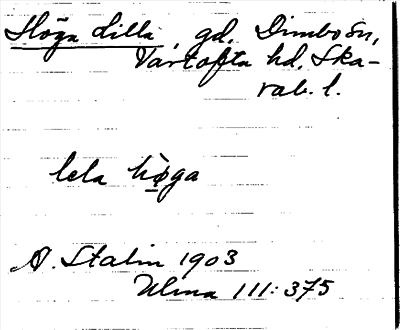 Höga Lilla, gd, Dimbo sn,
Vartofta hd, Ska-
rab. l.
lela hö̱ga
A. Stalin 1903
Ulma 111:375